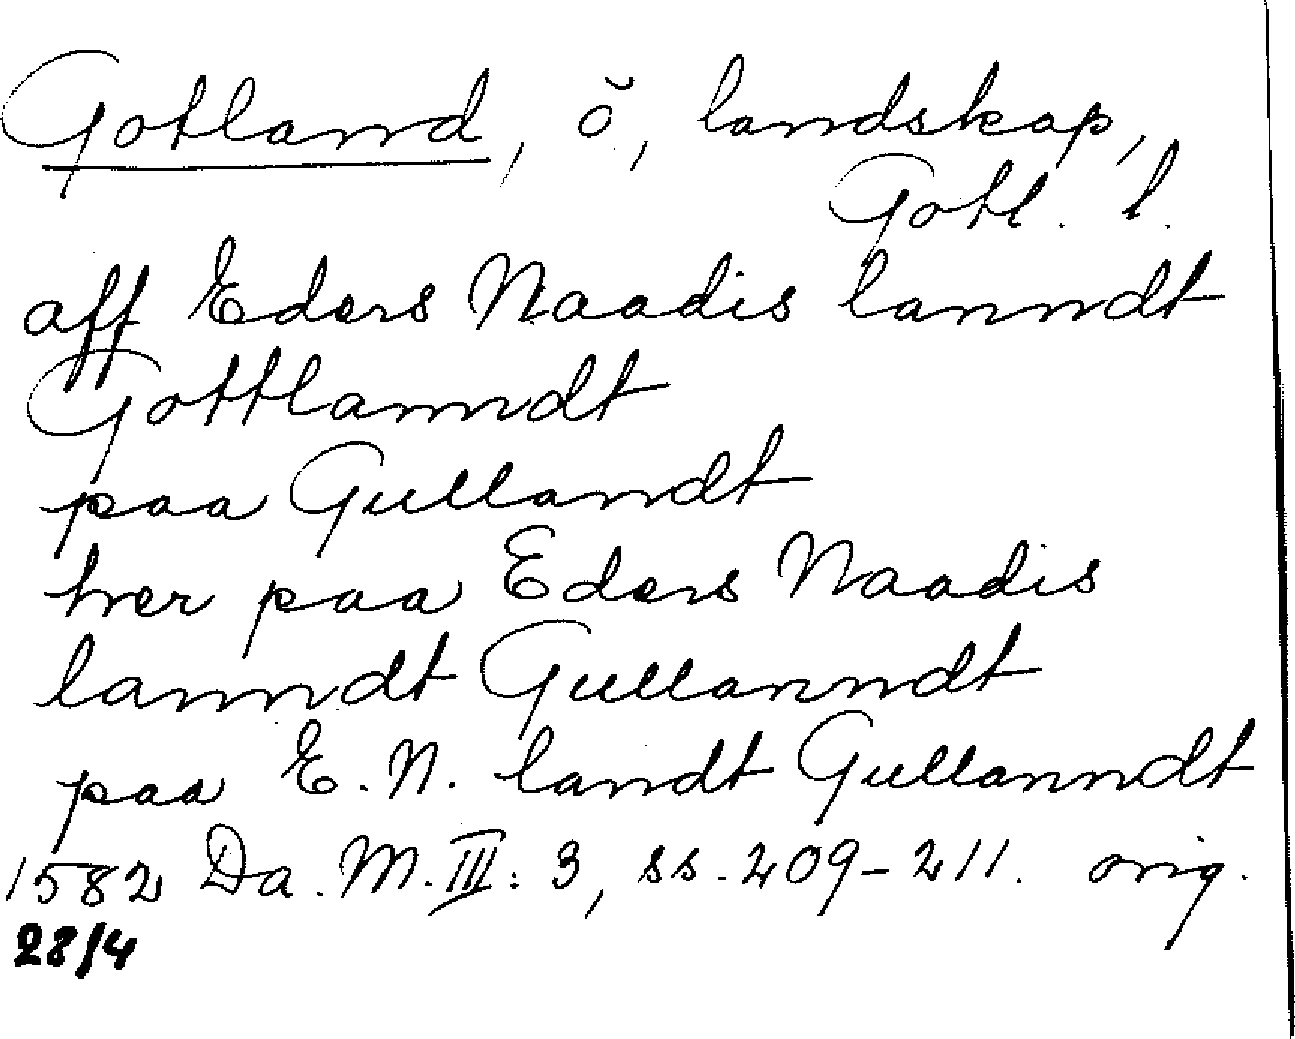 Gotland, ö, landskap,
Gotl. l.
aff Eders Naadis lanndt
Gottlanndt
paa Gullandt
her paa Eders Naadis
lanndt Gullanndt
paa E. N. landt Gullanndt
1582 Da. M. III: 3, ss. 209-211. orig.
28/4